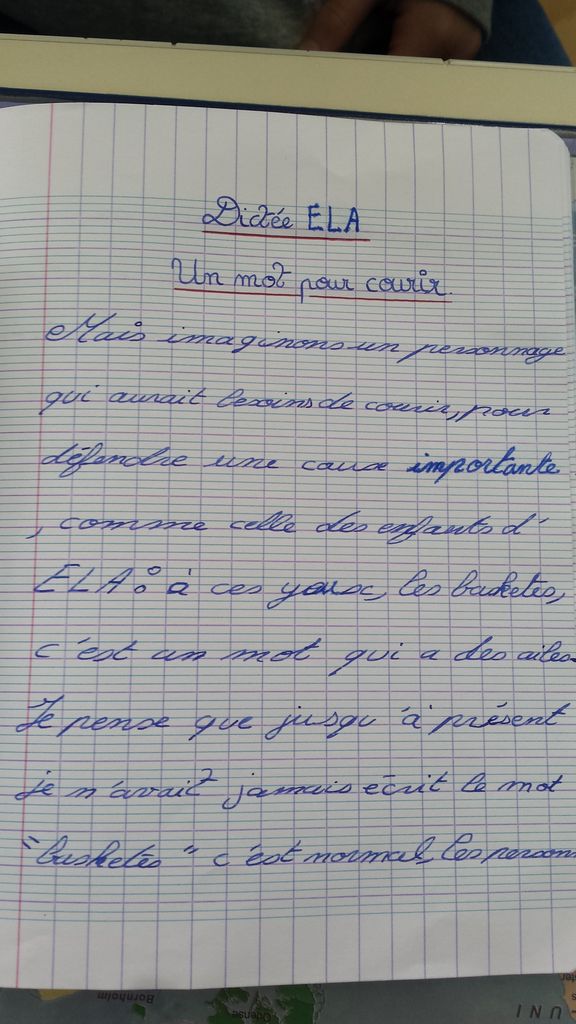 Dictée ELA
Un mot pour courir.
Mais imaginons un personnage
qui aurait besoins de courir, pour
défendre une cause importante
, comme celle des enfants d'
ELA : à ces yeux, les baskets,
c'est un mot qui a des ailes.
Je pense que jusqu'à présent
je n'avait jamais écrit le mot
"baskets" c'est normal, les person
Bornholm
Odense
UNI